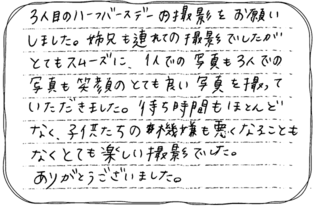 3人目のハーフバースデーの撮影をお願い
しました。姉兄も連れての撮影でしたが
とてもスムーズに、1人での写真も3人での
写真も笑顔のとても良い写真を撮って
いただきました。待ち時間もほとんど
なく、子供たちの機嫌も悪くなることも
なくとても楽しい撮影でした。
ありがとうございました。